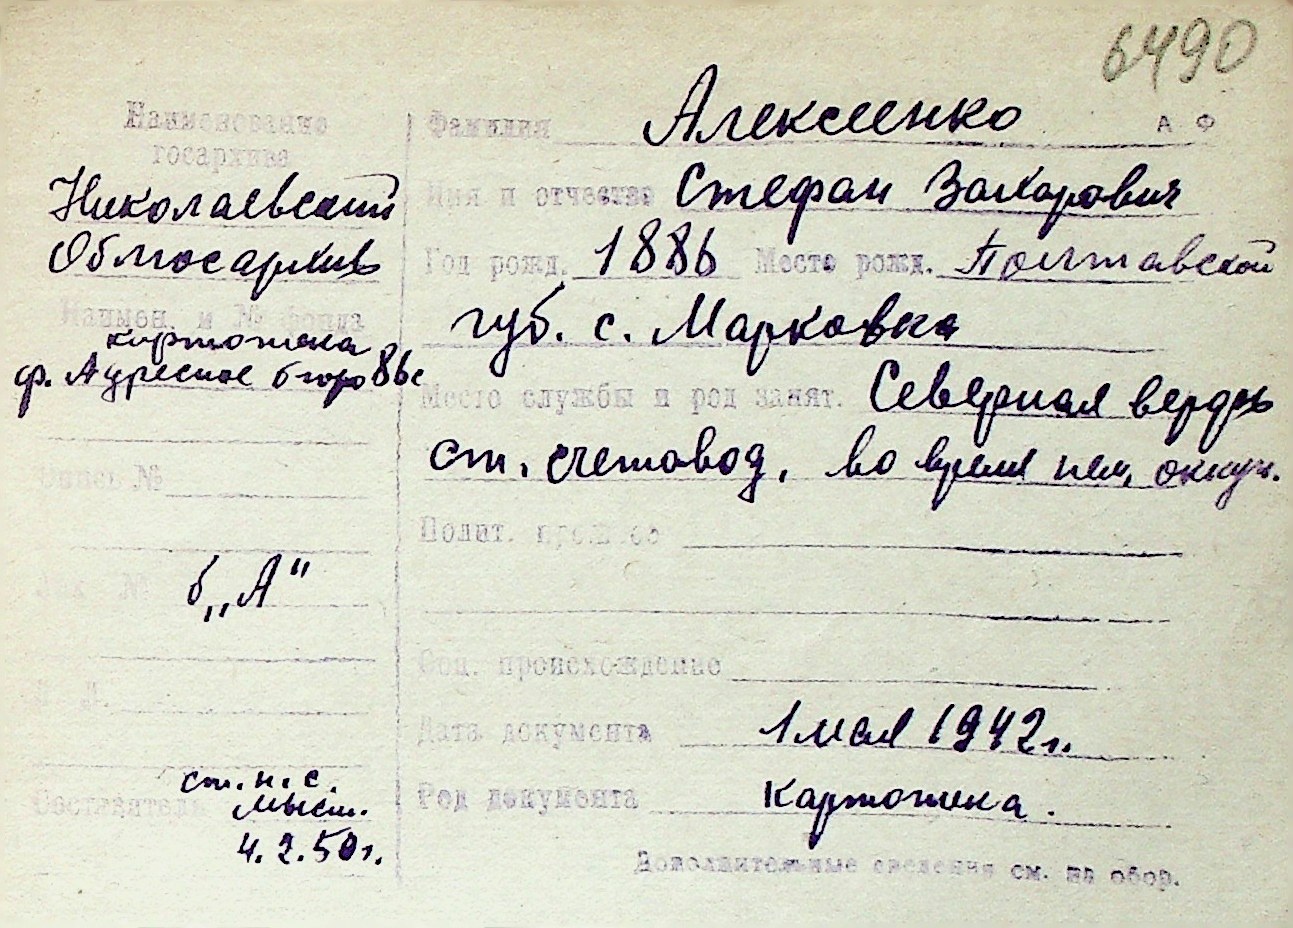 6490
Наименование
госархива
Николаевский
Облгосархив
Наимен. и № фонда
картотека
ф. Адресное бюро 86с
Опись №
б „А“
Л. Д.
Составитель
ст. н. с.
4.2.50г.
Фамилия Алексеенко А Ф
Имя и отчество Стефан Захарович
Год рожд. 1886 Место рожд. Полтавской
губ. с. Марковка
Место службы и род занят. Северная верфь
ст. счетовод, во время нем. оккуп.
Полит. прош-ое
Соц. происхождение
Дата документа 1 мая 1942г.
Род документа Картотека.
Дополнительные сведения см. на обор.